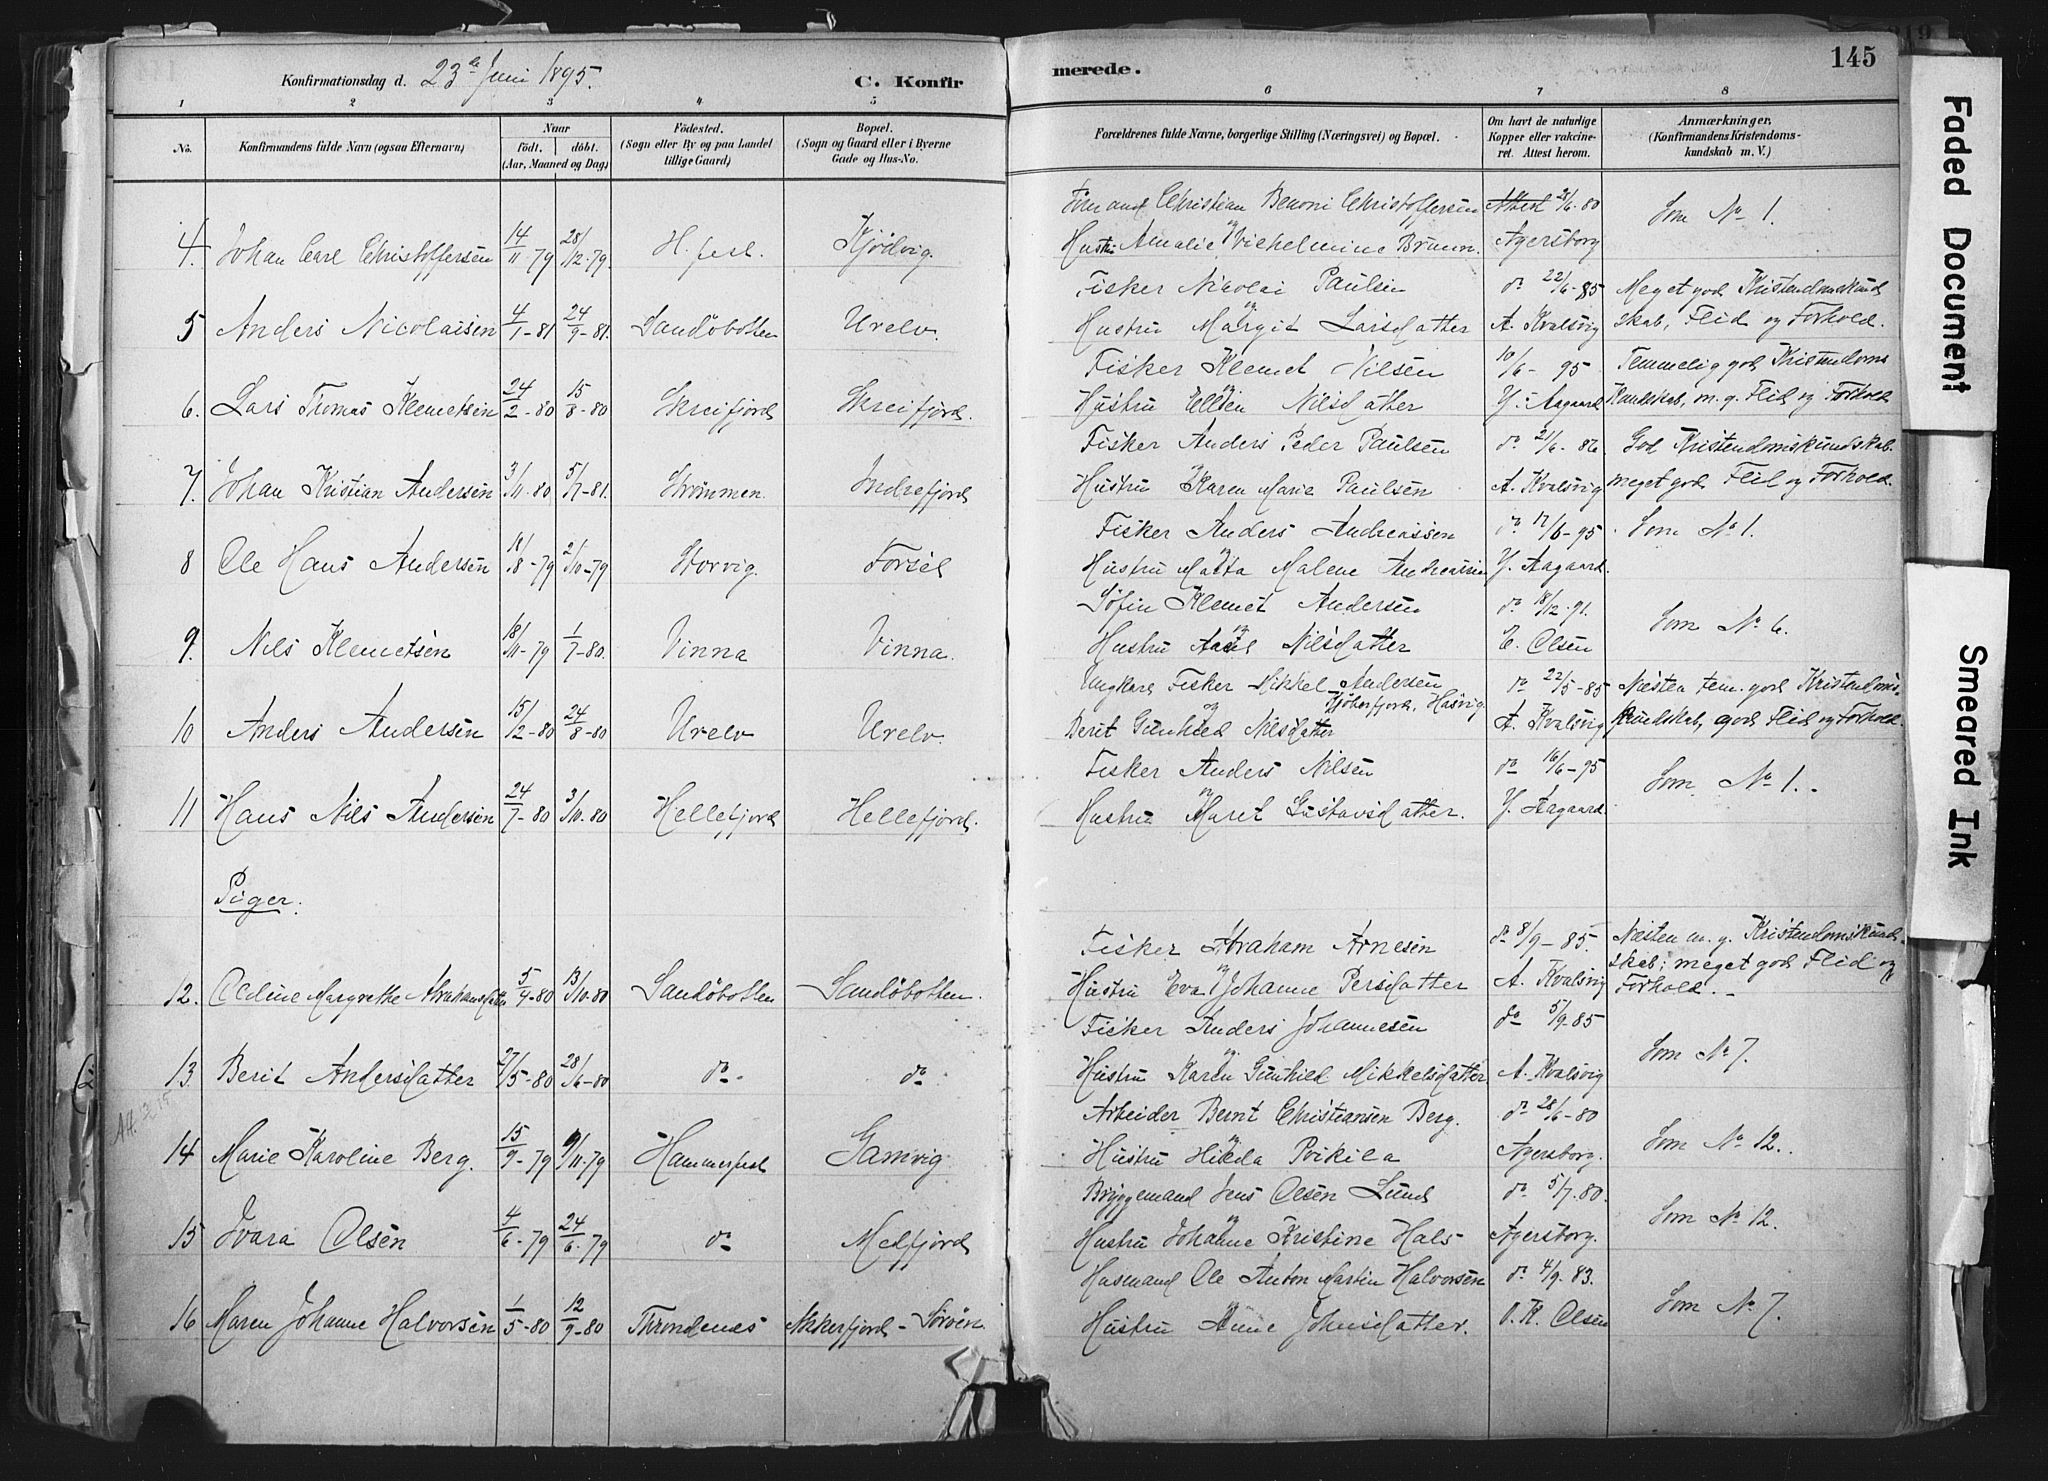 145
Konfirmationsdag d. 23de Juni 1895.
C. Konfirmerede.
1 2 3 4 5 6 7 8
No.
Konfirmandens fulde Navn (ogsaa Efternavn)
Naar
født. døbt.
(Aar, Maaned og Dag)
Fødested.
(Sogn eller By og paa Landet
tillige Gaard)
Bopæl.
(Sogn og Gaard eller i Byerne
Gade og Hus-No.
Forældrenes fulde Navne, borgerlige Stilling (Næringsvei) og Bopæl.
Om havt de naturlige
Kopper eller vakcine-
ret. Attest herom.
Anmærkninger.
(Konfirmandens Kristendoms-
kundskab m. V.)
Christian Benoni Christoffersen Attest 28/6-80
4. Johan Carl Christoffersen 14/11-79 28/12-79. H.fest. Kjødvig. Hustru Amalie Vilhelmine Bruun. Agersborg Som No 1.
Fisker Nicolai Paulsen do 22/6-85 Meget god Kristendomskund
5 Anders Nicolaisen 4/7-81 24/9-81. Sandøbotten Urelv. og Hustru Margit Larsdatter A. Kvalsvig skab, Flid og Forhold.
Fisker Klemet Nilsen 10/6-95 Temmelig god Kristendoms
6. Lars Thomas Klemetsen 24/2-80 15/8-80 Skreifjord Skreifjord. og Hustru Ellen Nilsdatter Y. Aagaard Kundskab, m. g. Flid og Forhold
Fisker Anders Peder Paulsen do 21/6-86. God Kristendomskundskab.
7. Johan Kristian Andersen 3/11-80 5/7-81. Strømmen. Indrefjord og Hustru Karen Marie Paulsen A. Kvalsvig meget god Flid og Forhold.
Fisker Anders Andreassen do 17/6-95 Som No 1.
8 Ole Hans Andersen 18/8-79 2/10-79 Storvig. Forsøl og Hustru Malene Andreassen Y. Aagaard.
Søfin Klemet Andersen do 18/12-91.
9. Nils Klemetsen 18/11-79 1/7-80. Vinna Vinna. og Hustru Nilsdatter E. Olsen Som No 6.
Ungkarl Fisker Mikkel Andersen do 22/5-85 Næsten tem. god Kristendoms-
Hasvig.
10 Anders Andersen 15/12-80 24/8-80 Urelv Urelv. og Berit Gunhild Nilsdatter A. Kvalsvig kundskab, god Flid og Forhold.
Fisker Anders Nilsen do 16/6-95
11 Hans Nils Andersen 24/7-80 3/10-80 Hellefjord Hellefjord. og Hustru Maret Gustavsdatter. Y. Aagaard. Som No 1.
Piger.
Fisker Abraham Arnesen do 8/9-85. Næsten m. g. Kristendomskund-
12. Oldine Margrethe Abrahamsdatter 5/9-80 13/10-80 Sandøbotten Sandøbotten. og Hustru Eva Johanne Persdatter A. Kvalsvig skab; meget god Flid og
Forhold.
Fisker Anders Johannesen do 5/9-85
13. Berit Andersdatter 27/5-80 28/6-80 do do og Hustru Karen Gunhild Mikkelsdatter. A. Kvalsvig Som No 7.
Arbeider Bernt Christiansen Berg. do 28/6-80
14 Marie Karoline Berg. 15/9-79 9/11-79 Hammerfest Gamvig. og Hustru Hilda Agersborg. Som No 12.
Bryggemand Jens Olsen Lund do 5/7-80.
15 Ivara Olsen 4/6-79 24/6-79 do Melfjord og Hustru Johanne Kristine Hals Agersborg. Som No 12.
Husmand Ole Anton Martin Halvorsen do 4/9-83.
16 Maren Johanne Halvorsen 1/5-80 12/9-80 Throndenes Akkerfjord - Sørøen. Hustru Anne Johnsdatter. O. K. Olsen Som No 7.
Faded Document
Smeared Ink